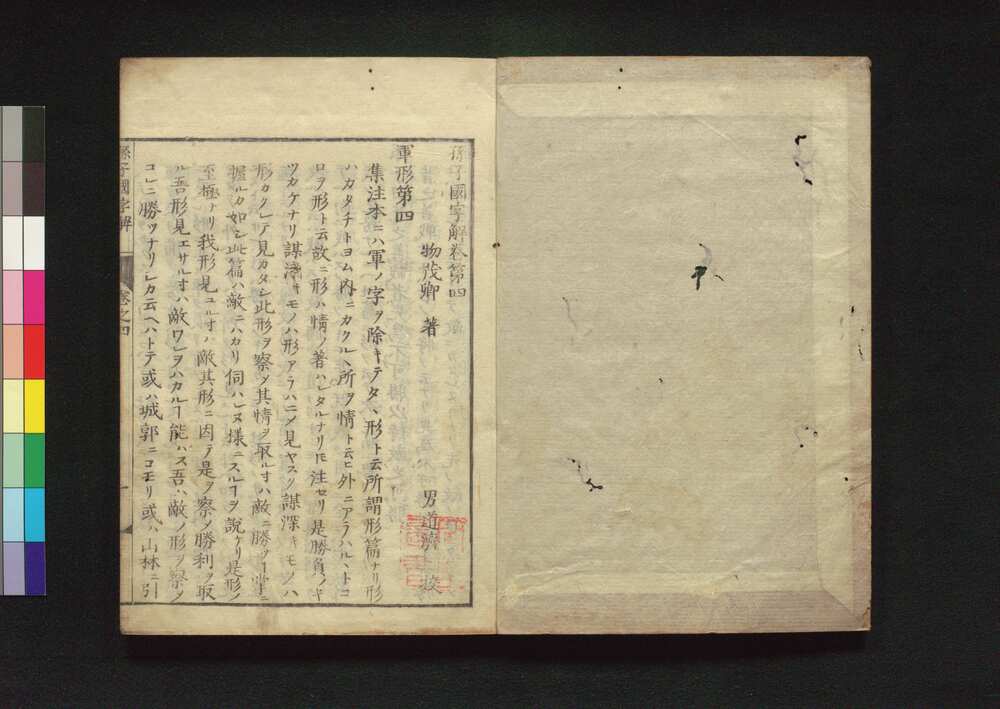 孫子國字解卷第四
物茂卿 著
男道濟 校
軍形第四
集注本ニハ軍ノ字ヲ除キテタヽ形ト云所謂形篇ナリ形
ハカタチトヨム内ニカクルヽ所ヲ情ト云ヒ外ニアラハルヽトコ
ロヲ形ト云故ニ形ハ情ノ著ハレタルナリト注セリ是勝負ノ
ツカケナリ謀淺キモノハ形アラハニメ見ヤスク謀深キモノハ
形カクレテ見カタシ此形ヲ察メ其情ヲ取ルオハ敵ニ勝ヿ掌ニ
握ルカ如シ此篇ハ敵ニハカリ伺ハレヌ様ニスルヿヲ說ケリ是形ノ
至極ナリ我形見ユルオハ敵其形ニ因テ是ヲ察メ勝利ヲ取
ル吾形見エサルオハ敵ワレヲハカルヿ能ハス吾ハ敵ノ形ヲ察メ
コレニ勝ツナリシカ云ヘハトテ或ハ城郭ニコモリ或ハ山林ニ引
孫子國字解 卷之四 一